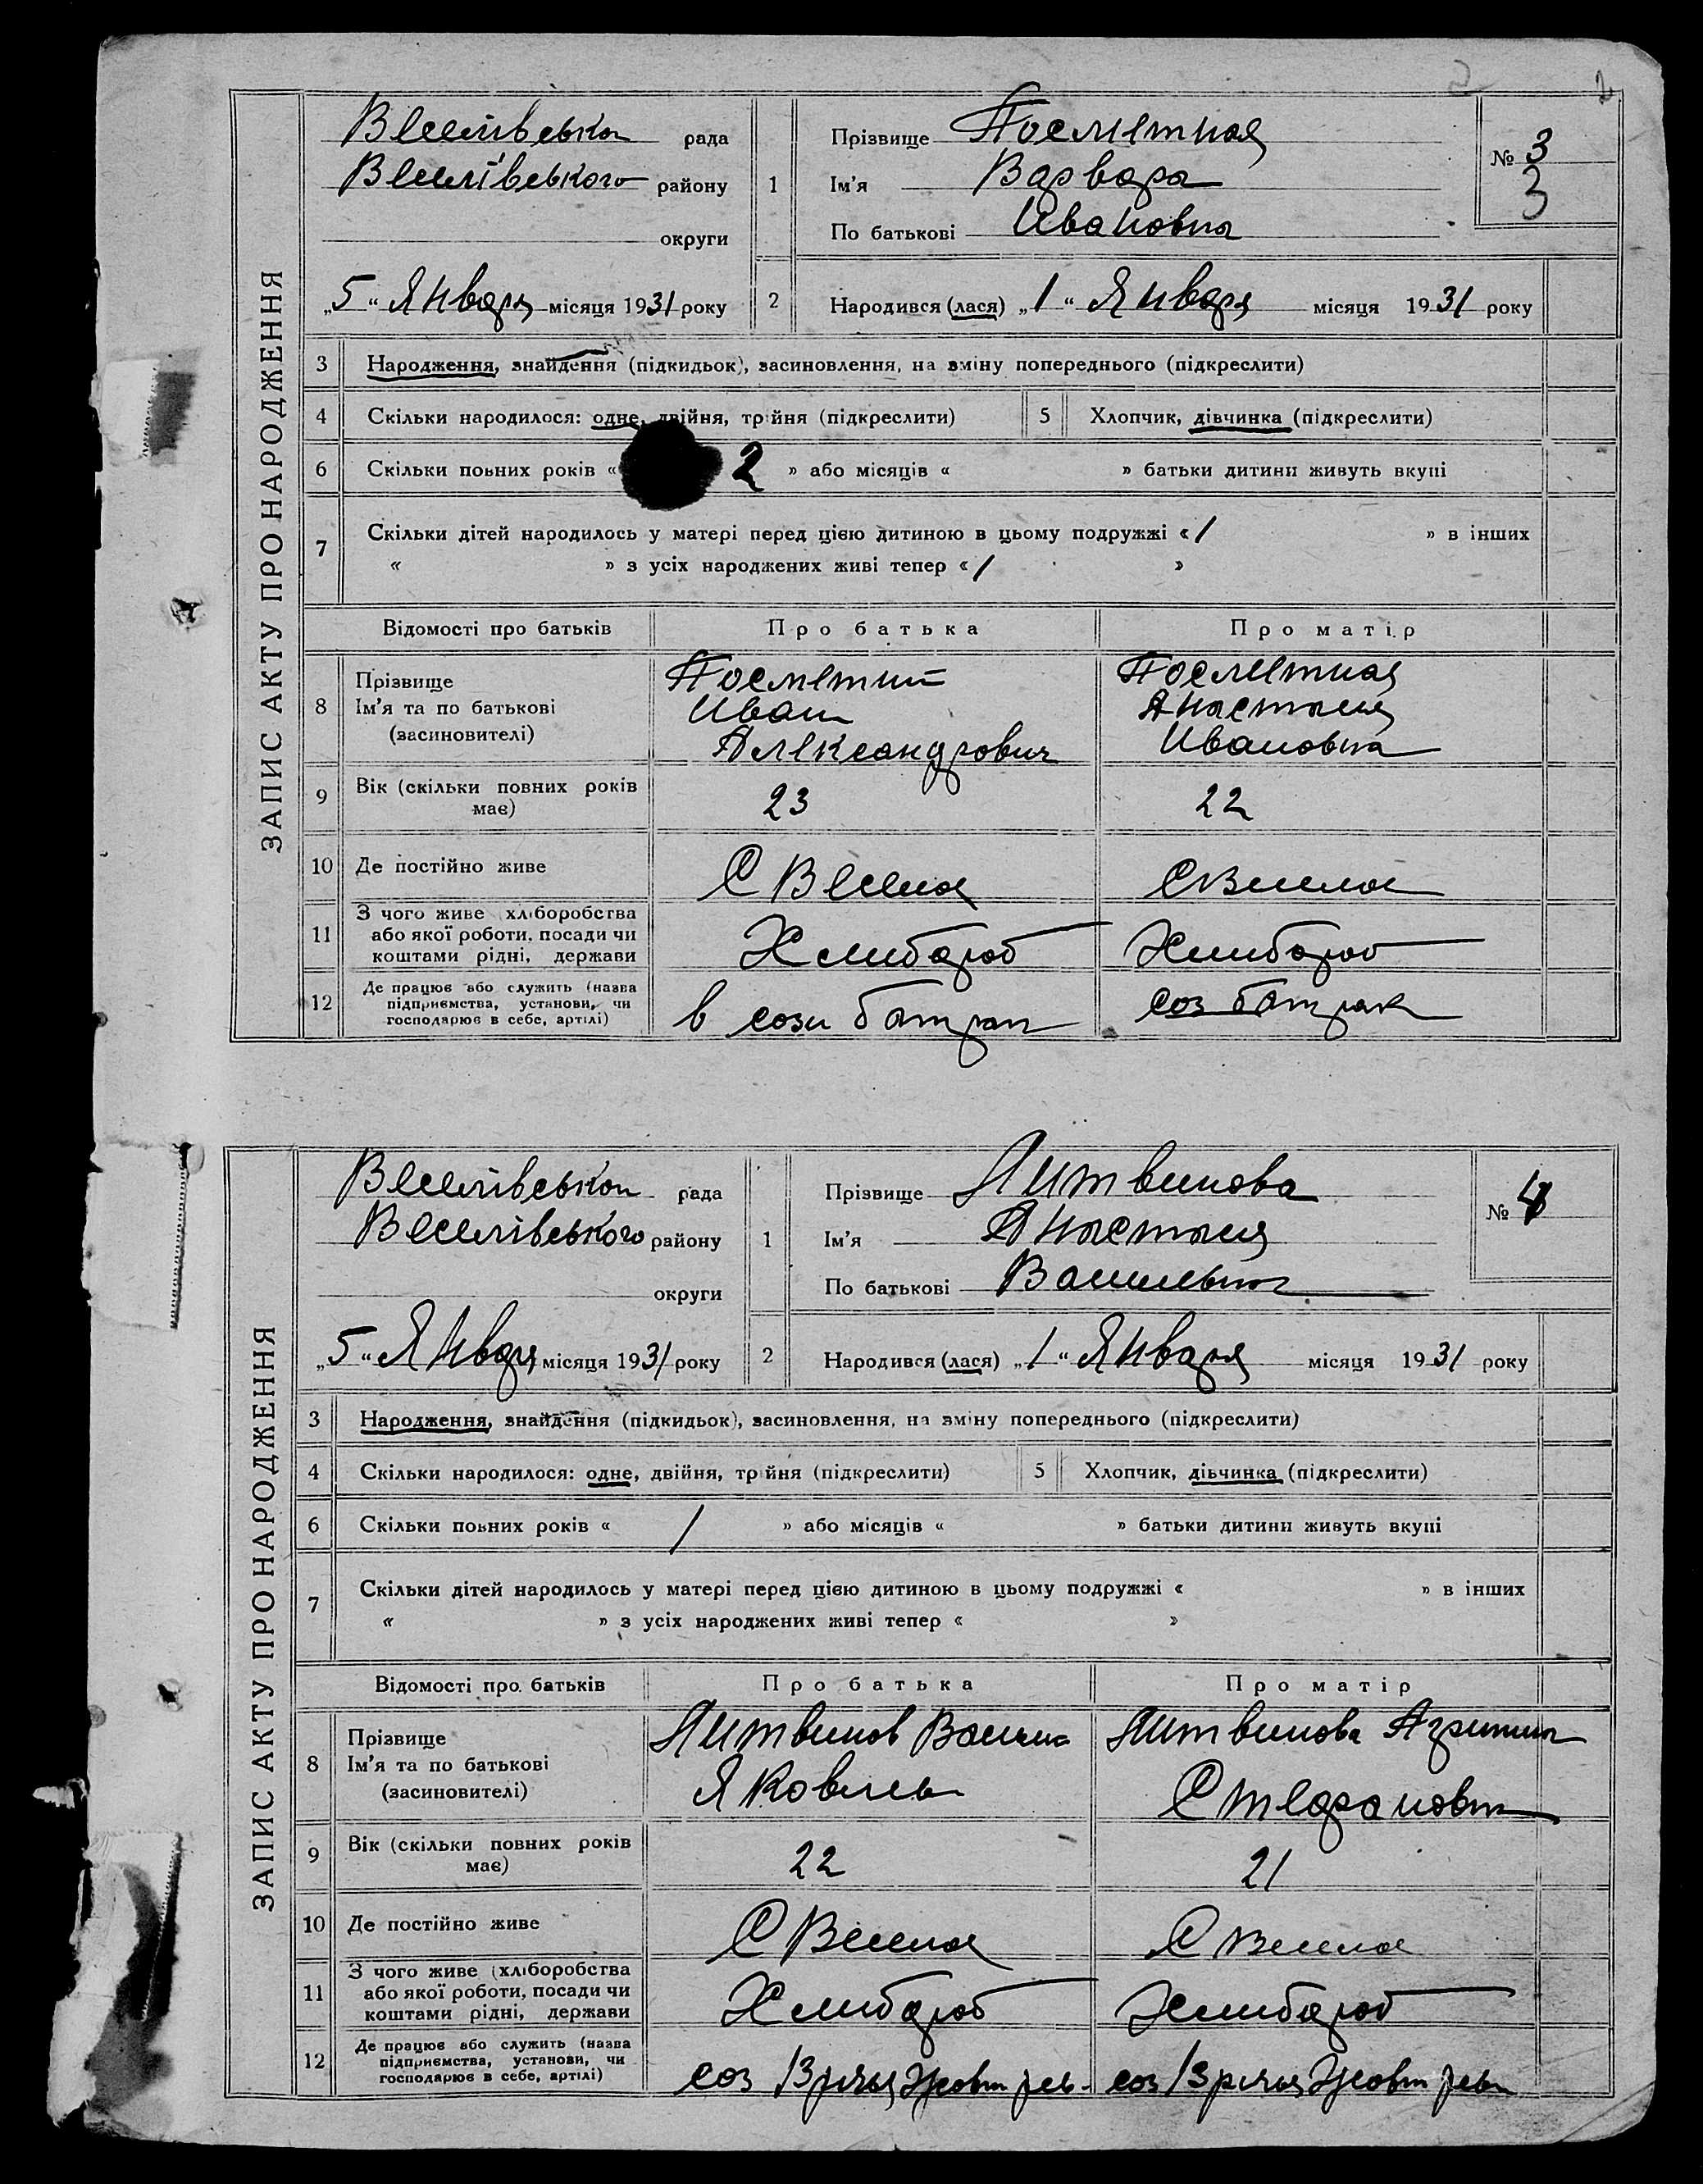 2
ЗАПИС АКТУ ПРО НАРОДЖЕННЯ
Веселівська рада
Веселівського району
округи
„5“ Января місяця 1931 року
1 Прізвище Посметная
Ім'я Варвара
По батькові Ивановна
№ 3
3
2 Народився (лася) „1“ Января місяця 1931 року
3 Народження, знайдення (підкидьок), засиновлення, на зміну попереднього (підкреслити)
4 Скільки народилося: одне, двійня, трійня (підкреслити) 5 Хлопчик, дівчинка (підкреслити)
6 Скільки повних років « 2 » або місяців « » батьки дитини живуть вкупі
7 Скільки дітей народилось у матері перед цією дитиною в цьому подружжі «1 » в інших
« » з усіх народжених живі тепер «1 »
Відомості про батьків Про батька Про матір
8 Прізвище Посметний Посметная
Ім'я та по батькові Иван Анастасия
(засиновителі) Александрович Ивановна
9 Вік (скільки повних років має) 23 22
10 Де постійно живе С Весела С Весела
11 З чого живе (хліборобства
або якої роботи, посади чи Хлибороб Хлибороб
коштами рідні, держави
12 Де працює або служить (назва
підприємства, установи, чи в сози батрак соз батрак
господарює в себе, артілі)
ЗАПИС АКТУ ПРО НАРОДЖЕННЯ
Веселівська рада
Веселівського району
округи
„5“ Января місяця 1931 року
1 Прізвище Литвинова
Ім'я Анастасия
По батькові Васильевна
№ 4
2 Народився (лася) „1“ Января місяця 1931 року
3 Народження, знайдення (підкидьок), засиновлення, на зміну попереднього (підкреслити)
4 Скільки народилося: одне, двійня, трійня (підкреслити) 5 Хлопчик, дівчинка (підкреслити)
6 Скільки повних років « 1 » або місяців « » батьки дитини живуть вкупі
7 Скільки дітей народилось у матері перед цією дитиною в цьому подружжі « » в інших
« » з усіх народжених живі тепер « »
Відомості про батьків Про батька Про матір
8 Прізвище Литвинов Василь Литвинова
Ім'я та по батькові
(засиновителі) Яковлев Стефановна
9 Вік (скільки повних років має) 22 21
10 Де постійно живе С Весела С Весела
11 З чого живе (хліборобства
або якої роботи, посади чи Хлибороб Хлибороб
коштами рідні, держави
12 Де працює або служить (назва
підприємства, установи, чи соз 13 Жовт рев. соз 13 Жовт рев
господарює в себе, артілі)